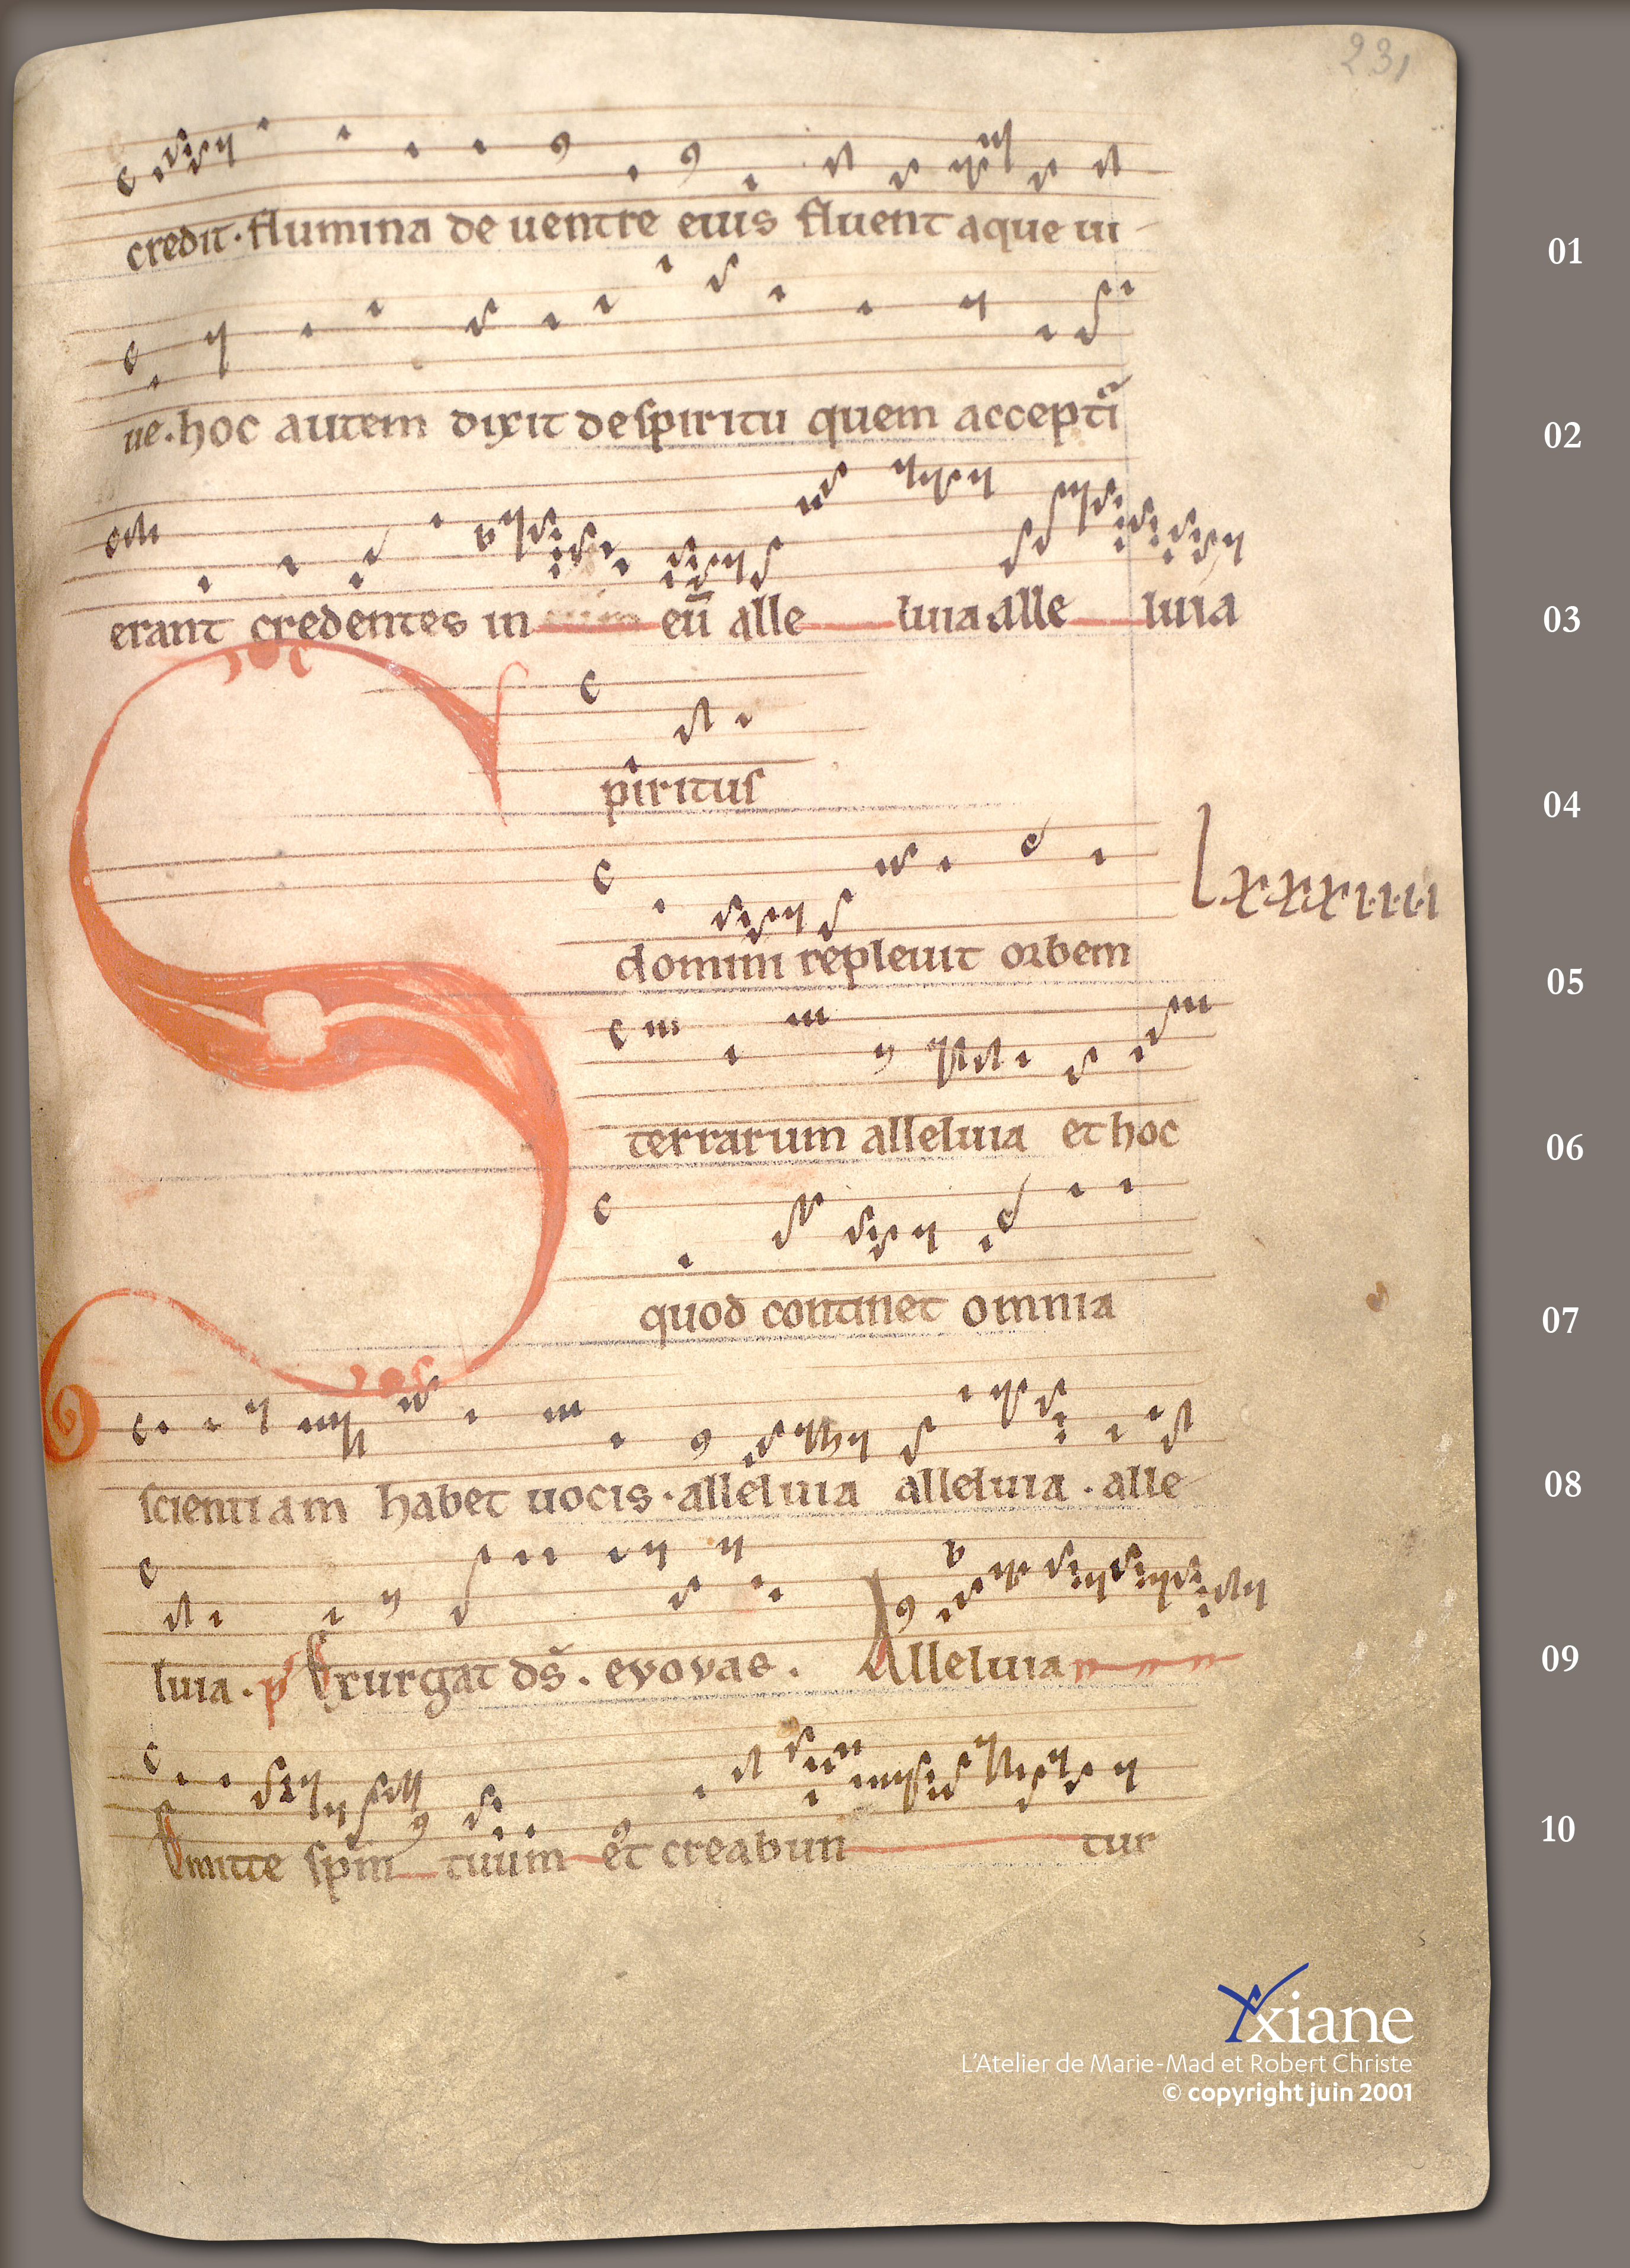 231
credit · flumina de uentre eius fluent aque ui
01
ue · hoc autem dixit de spiritu quem acceptī
02
erant credentes in eū alle luia alle luia
03
Spiritus
04
domini repleuit orbem
lxxxiiii
05
terrarum alleluia et hoc
06
quod continet omnia
07
scientiam habet uocis · alleluia alleluia · alle
08
luia · p Exurgat ds̄ . evovae . Alleluia
09
Emitte sp̄m tuum et creabun tur
10
Yxiane
L'Atelier de Marie-Mad et Robert Christe
© copyright juin 2001